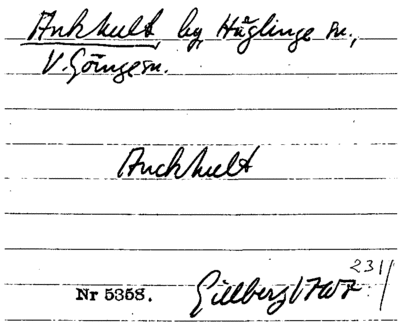 Ankhult, by, Häglinge sn,
V. Göinge sn.
Anckhult
231
Nr 5358. Gillberg 1767